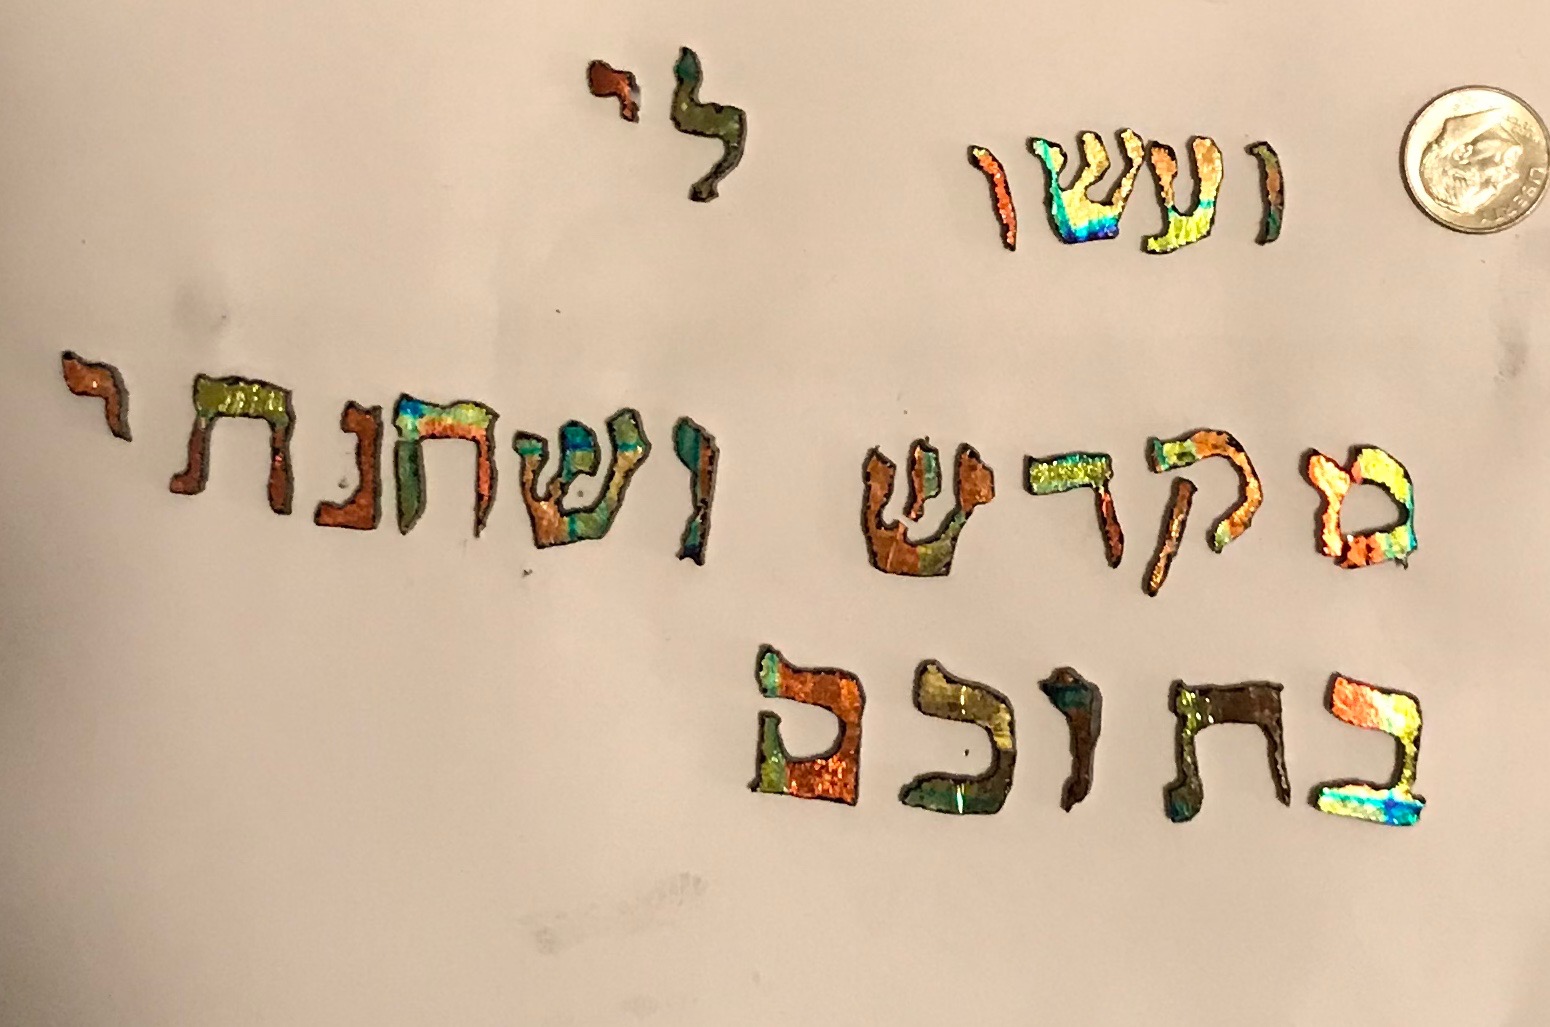 ועשו לי
מקדש ושחנתי
בתוכם